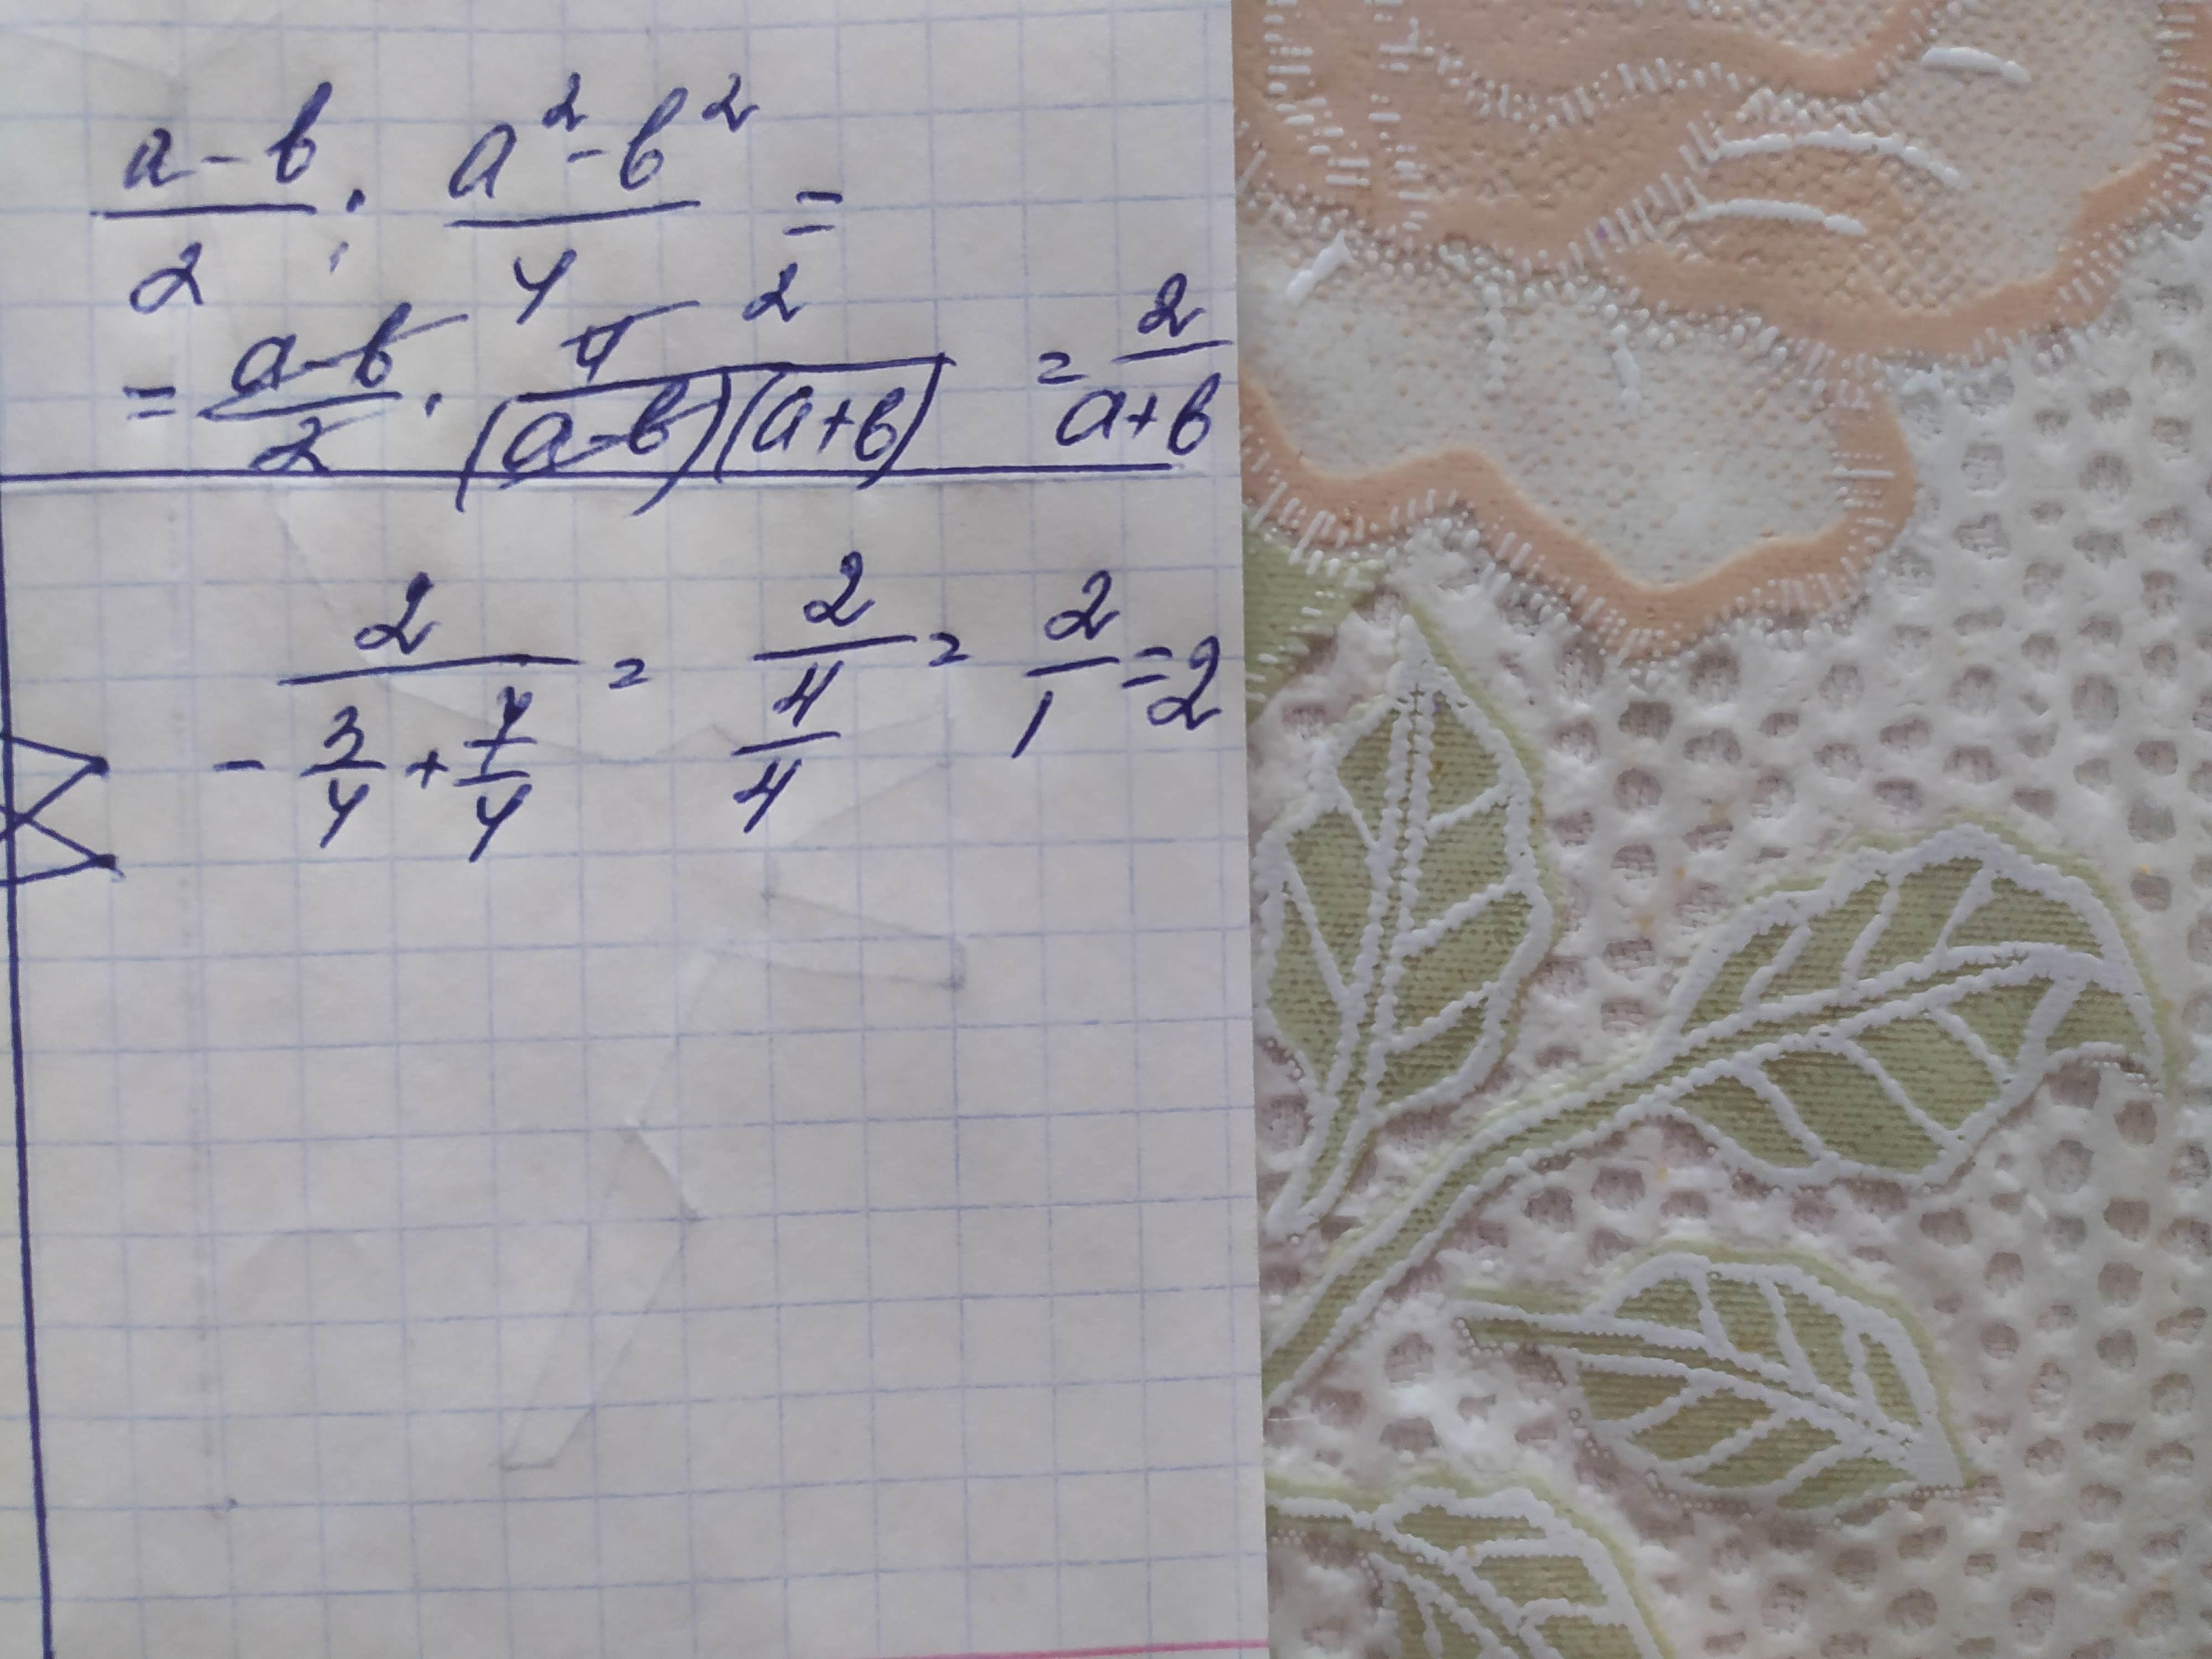 (a-b)/2 : (a²-b²)/4 =
= (a-b)/2 · 4/((a-b)(a+b)) 2 = 2/(a+b)
2/(-3/4+7/4) = 2/(4/4) = 2/1 = 2